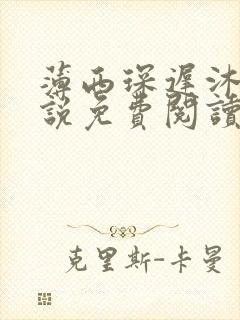 薄西琛遲沐
説免費閱讀
克里斯-卡曼